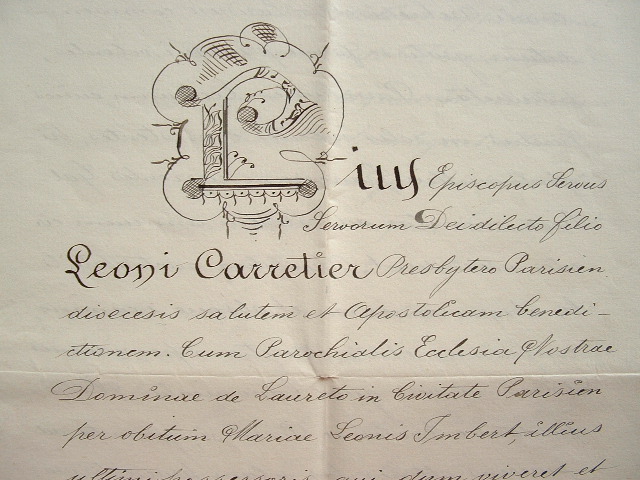 Pius Episcopus Servus
Servorum Dei dilecto filio
Leoni Carretier Presbytero Parisien
dioecesis salutem et Apostolicam benedi-
ctionem. Cum Parochialis Ecclesia Nostrae
Dominae de Laureto in Civitate Parisien
per obitum Mariae Leonis Imbert, illius
ultimi possessoris qui dum viveret et